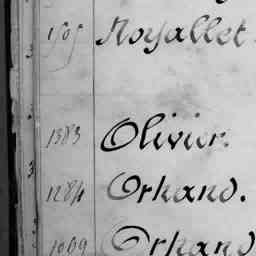 1505 Noyallet.
1383 Olivier.
1284 Orhand.
1009 Orhand